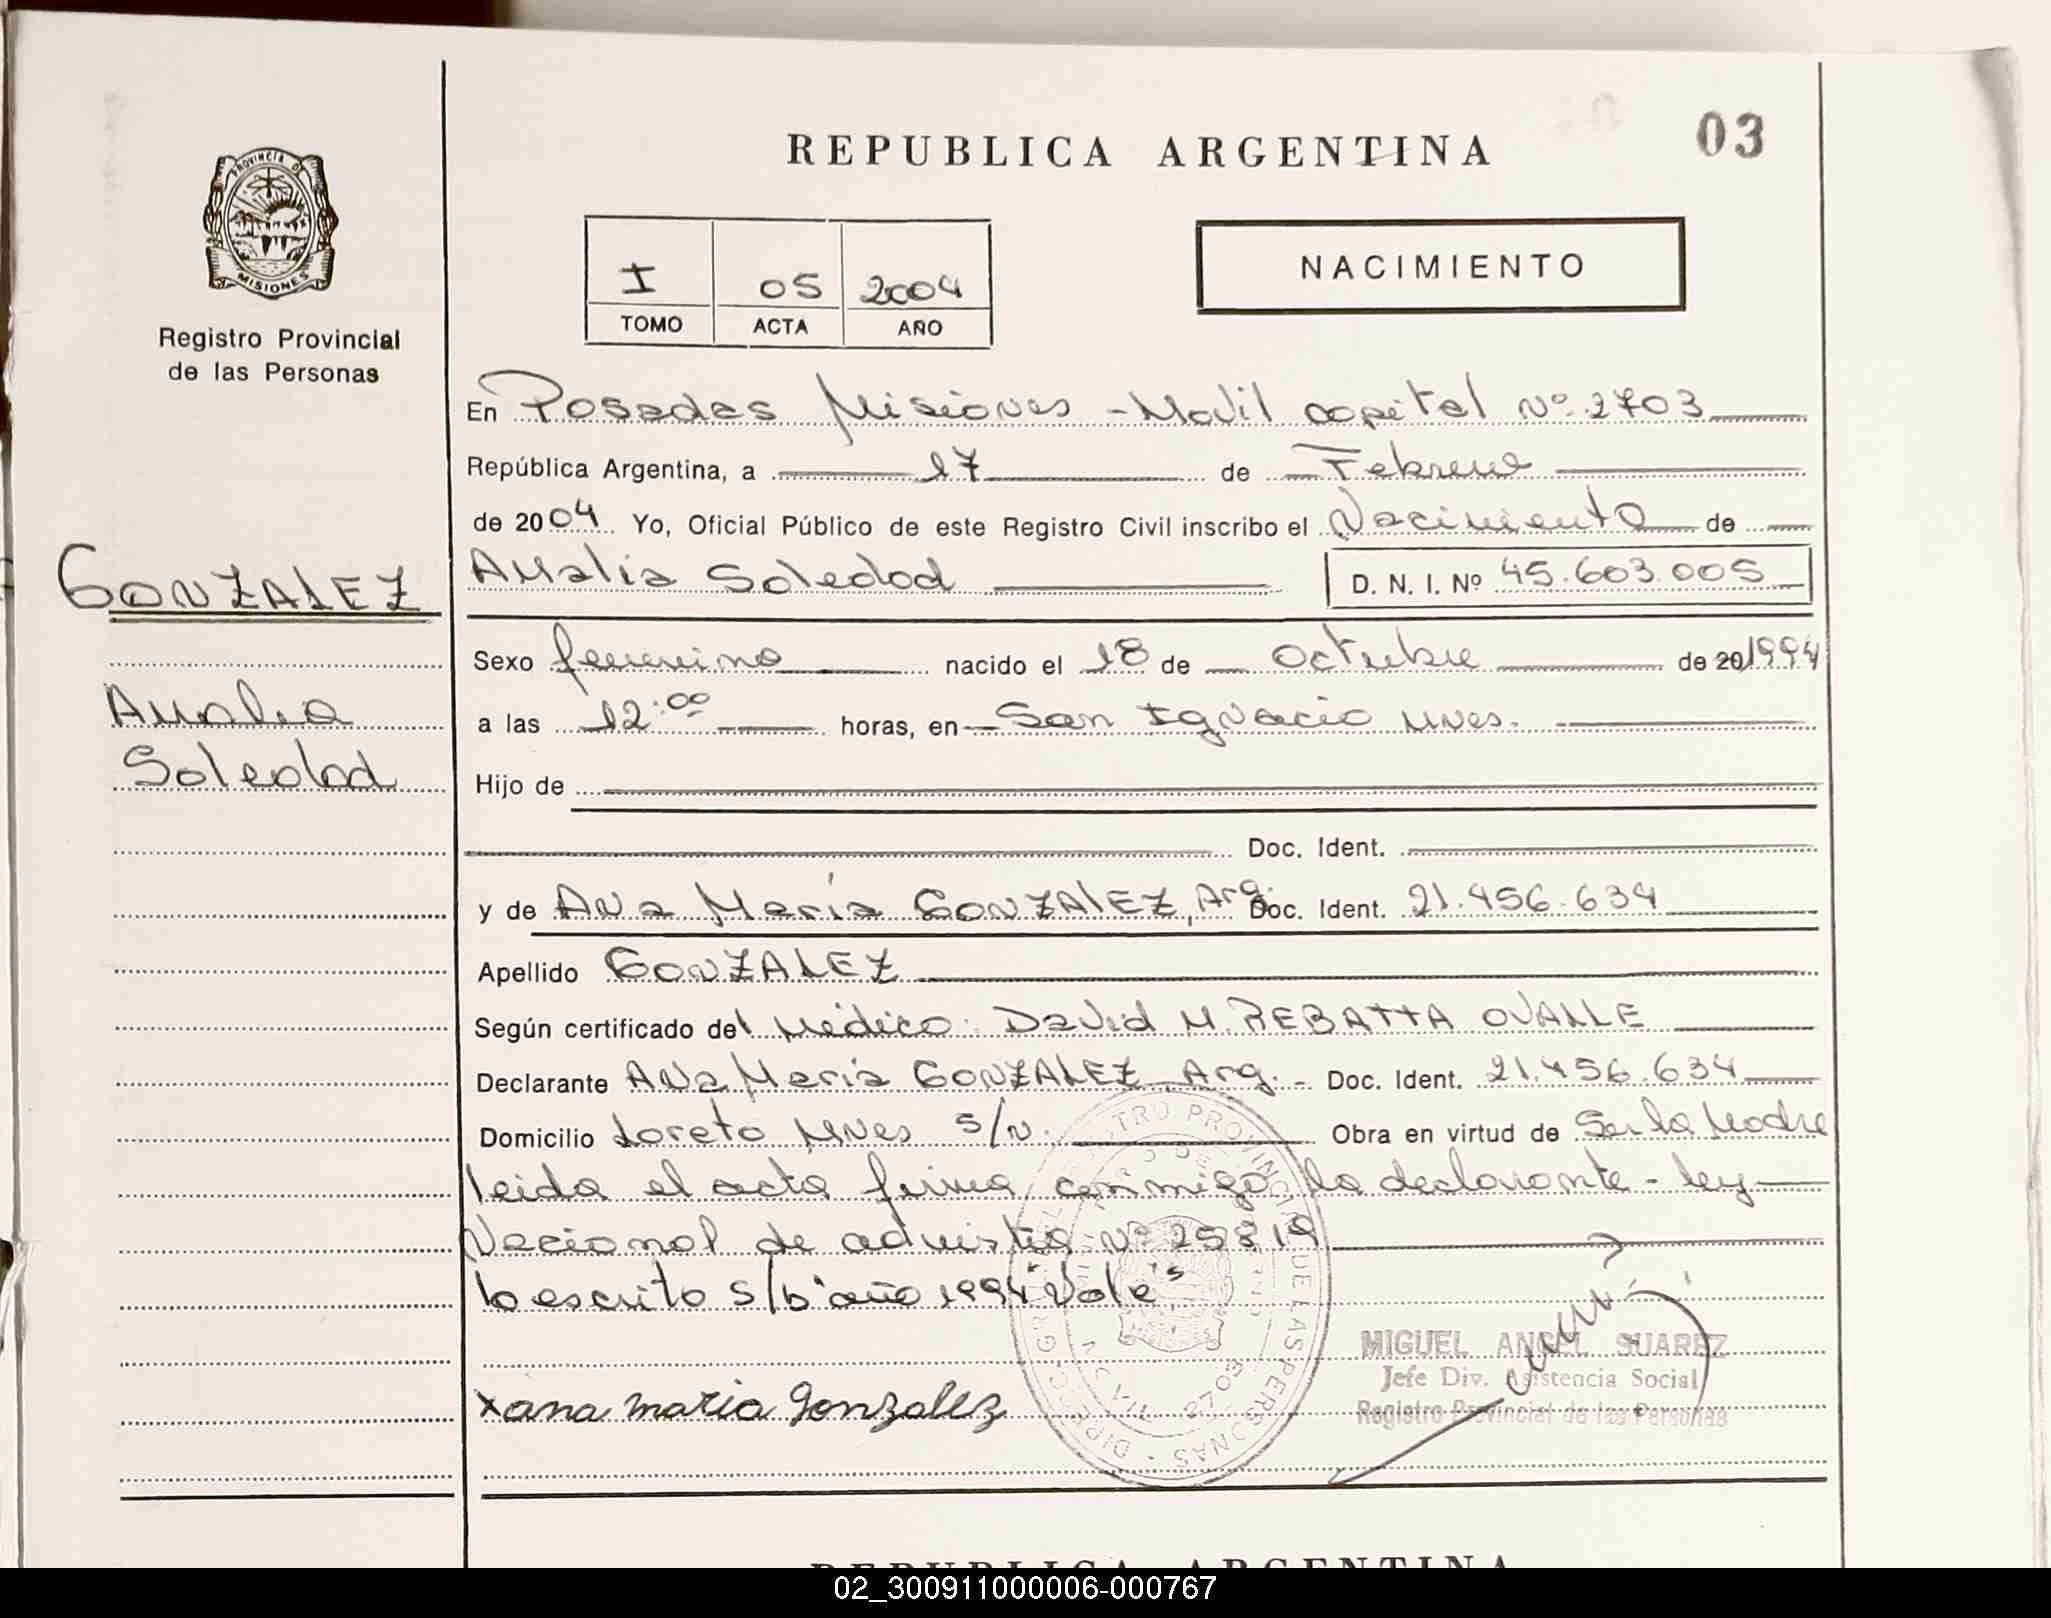 REPUBLICA ARGENTINA
03
PROVINCIA DE MISIONES
Registro Provincial
de las Personas
I 05 2004
TOMO ACTA AÑO
NACIMIENTO
En Posadas Misiones - Movil capital Nº 2703
República Argentina, a 17 de Febrero
de 2004 Yo, Oficial Público de este Registro Civil inscribo el Nacimiento de
GONZALEZ
Amalia Soledad
Amalia Soledad D. N. I. Nº 45.603.005
Sexo femenino nacido el 18 de Octubre de 20 1994
a las 12:00 horas, en San Ignacio Mnes.
Hijo de
Doc. Ident.
y de Ana María GONZALEZ, Arg. Doc. Ident. 21.456.634
Apellido GONZALEZ
Según certificado del Médico: David M. REBATTA OVALLE
Declarante Ana María GONZALEZ Arg. - Doc. Ident. 21.456.634
Domicilio Loreto Mnes s/n. Obra en virtud de Ser la Madre
leida el acta firma conmigo la declarante - ley
Nacional de Nº 25819
lo escrito s/b "año 1994" Vale
MIGUEL ANGEL SUAREZ
Jefe Div. Asistencia Social
Registro Provincial de las Personas
x ana maria Gonzalez
REPUBLICA ARGENTINA
02_300911000006-000767